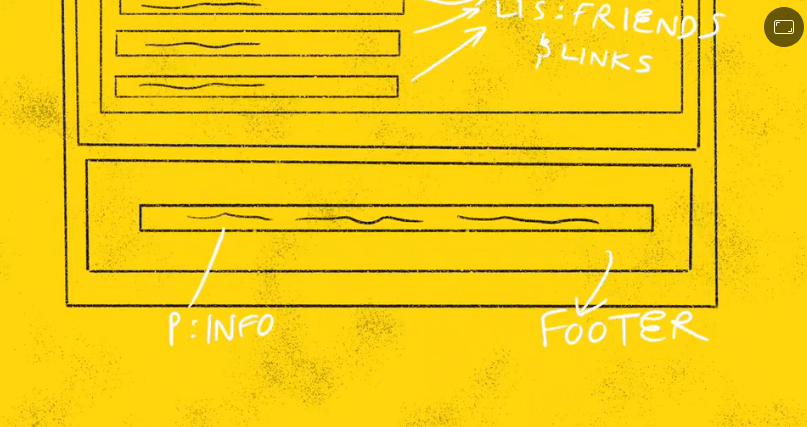 LIS:FRIENDS
& LINKS
P:INFO
FOOTER